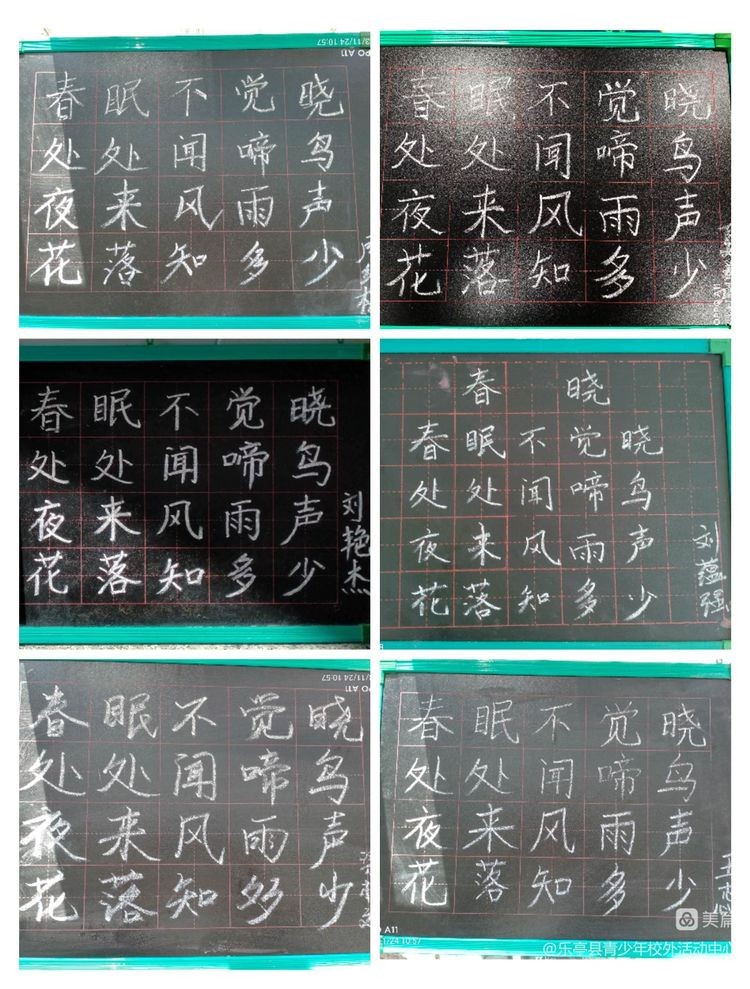 春眠不觉晓
处处闻啼鸟
夜来风雨声
花落知多少
3/11/24 10:57
PO A11
春眠不觉晓
处处闻啼鸟
夜来风雨声
花落知多少
春眠不觉晓
处处闻啼鸟
夜来风雨声
花落知多少
刘艳杰
春晓
春眠不觉晓
处处闻啼鸟
夜来风雨声
花落知多少
刘蕴强
春眠不觉晓
处处闻啼鸟
夜来风雨声
花落知多少
3/11/24 10:57
PO A11
春眠不觉晓
处处闻啼鸟
夜来风雨声
花落知多少
A11
11/24 10:57
美篇
@乐亭县青少年校外活动中心